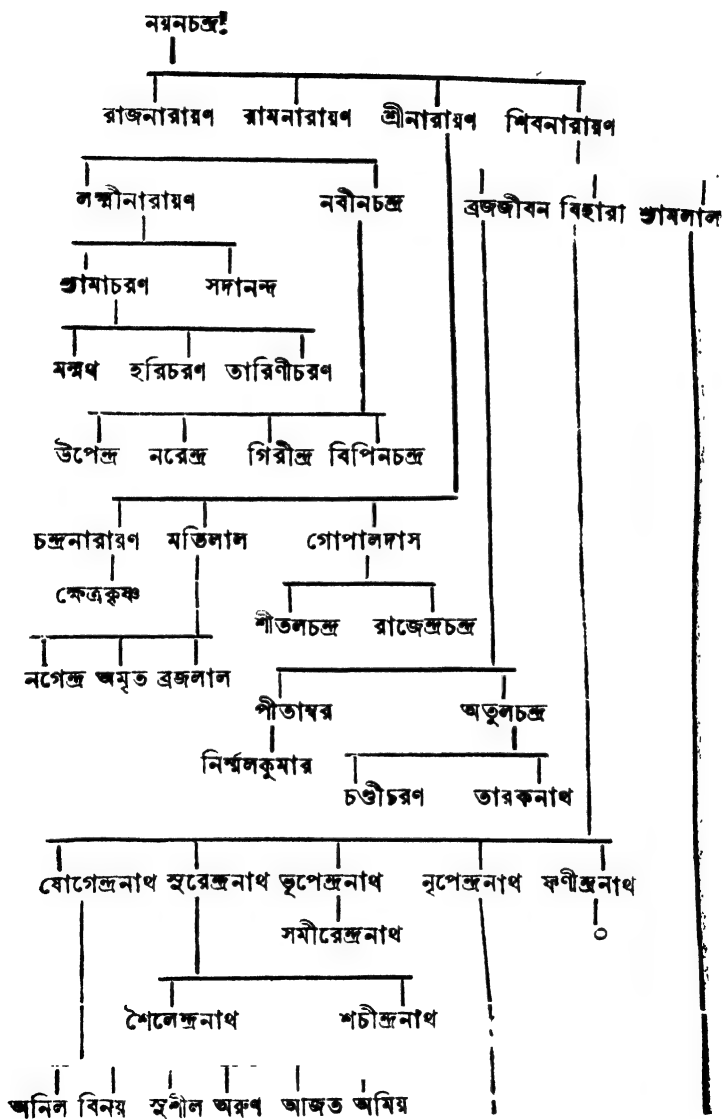 নয়নচন্দ্র!
রাজনারায়ণ রামনারায়ণ শ্রীনারায়ণ শিবনারায়ণ
লক্ষ্মীনারায়ণ নবীনচন্দ্র ব্রজজীবন বিহারা শ্যামলাল
শ্যামাচরণ সদানন্দ
মন্মথ হরিচরণ তারিণীচরণ
উপেন্দ্র নরেন্দ্র গিরীন্দ্র বিপিনচন্দ্র
চন্দ্রনারায়ণ মতিলাল গোপালদাস
ক্ষেত্রকৃষ্ণ
শীতলচন্দ্র রাজেন্দ্রচন্দ্র
নগেন্দ্র অমৃত ব্রজলাল
পীতাম্বর অতুলচন্দ্র
নির্ম্মলকুমার
চণ্ডীচরণ তারকনাথ
যোগেন্দ্রনাথ সুরেন্দ্রনাথ ভূপেন্দ্রনাথ নৃপেন্দ্রনাথ ফণীন্দ্রনাথ
সমীরেন্দ্রনাথ ০
শৈলেন্দ্রনাথ শচীন্দ্রনাথ
অনিল বিনয় সুশীল অরুণ আজত অমিয়